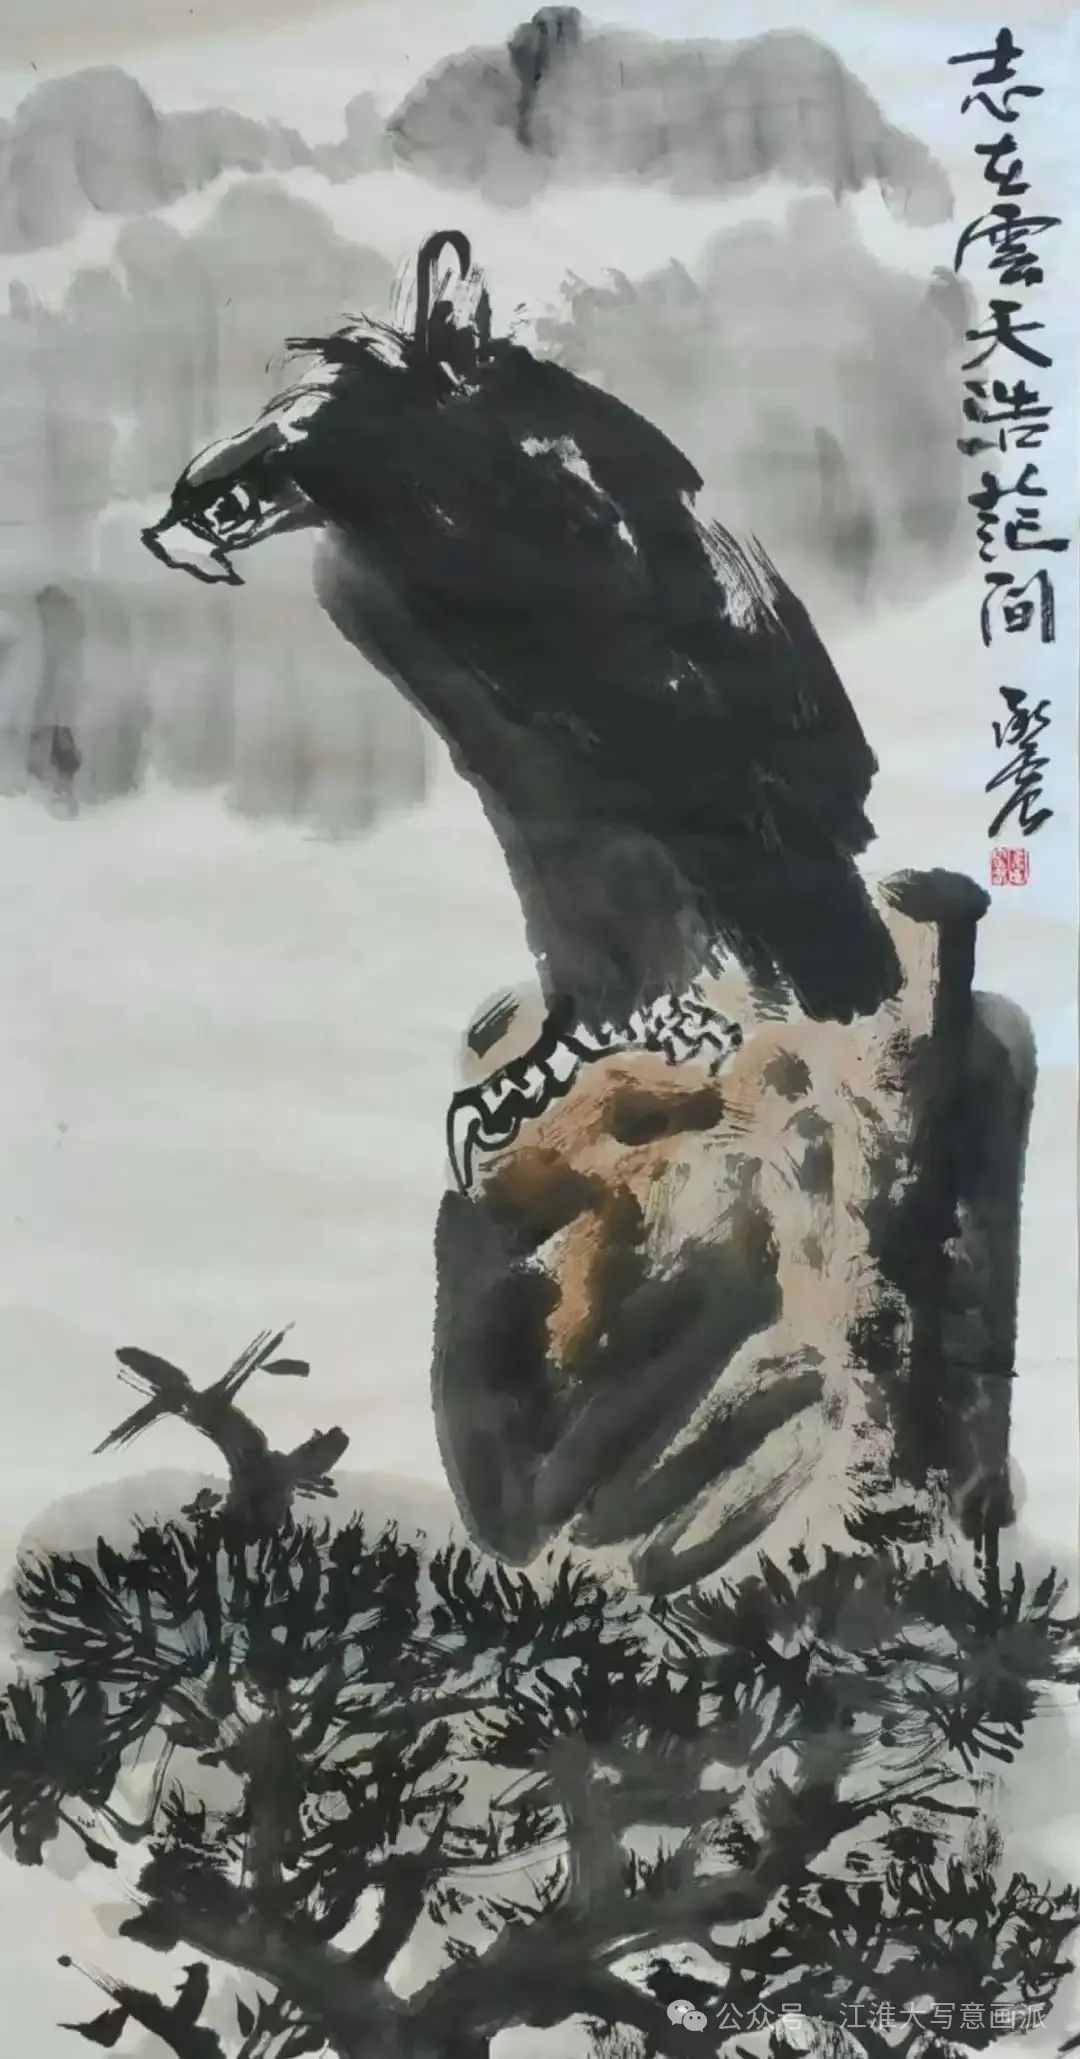 志在雲天浩茫间
公众号·江淮大写意画派